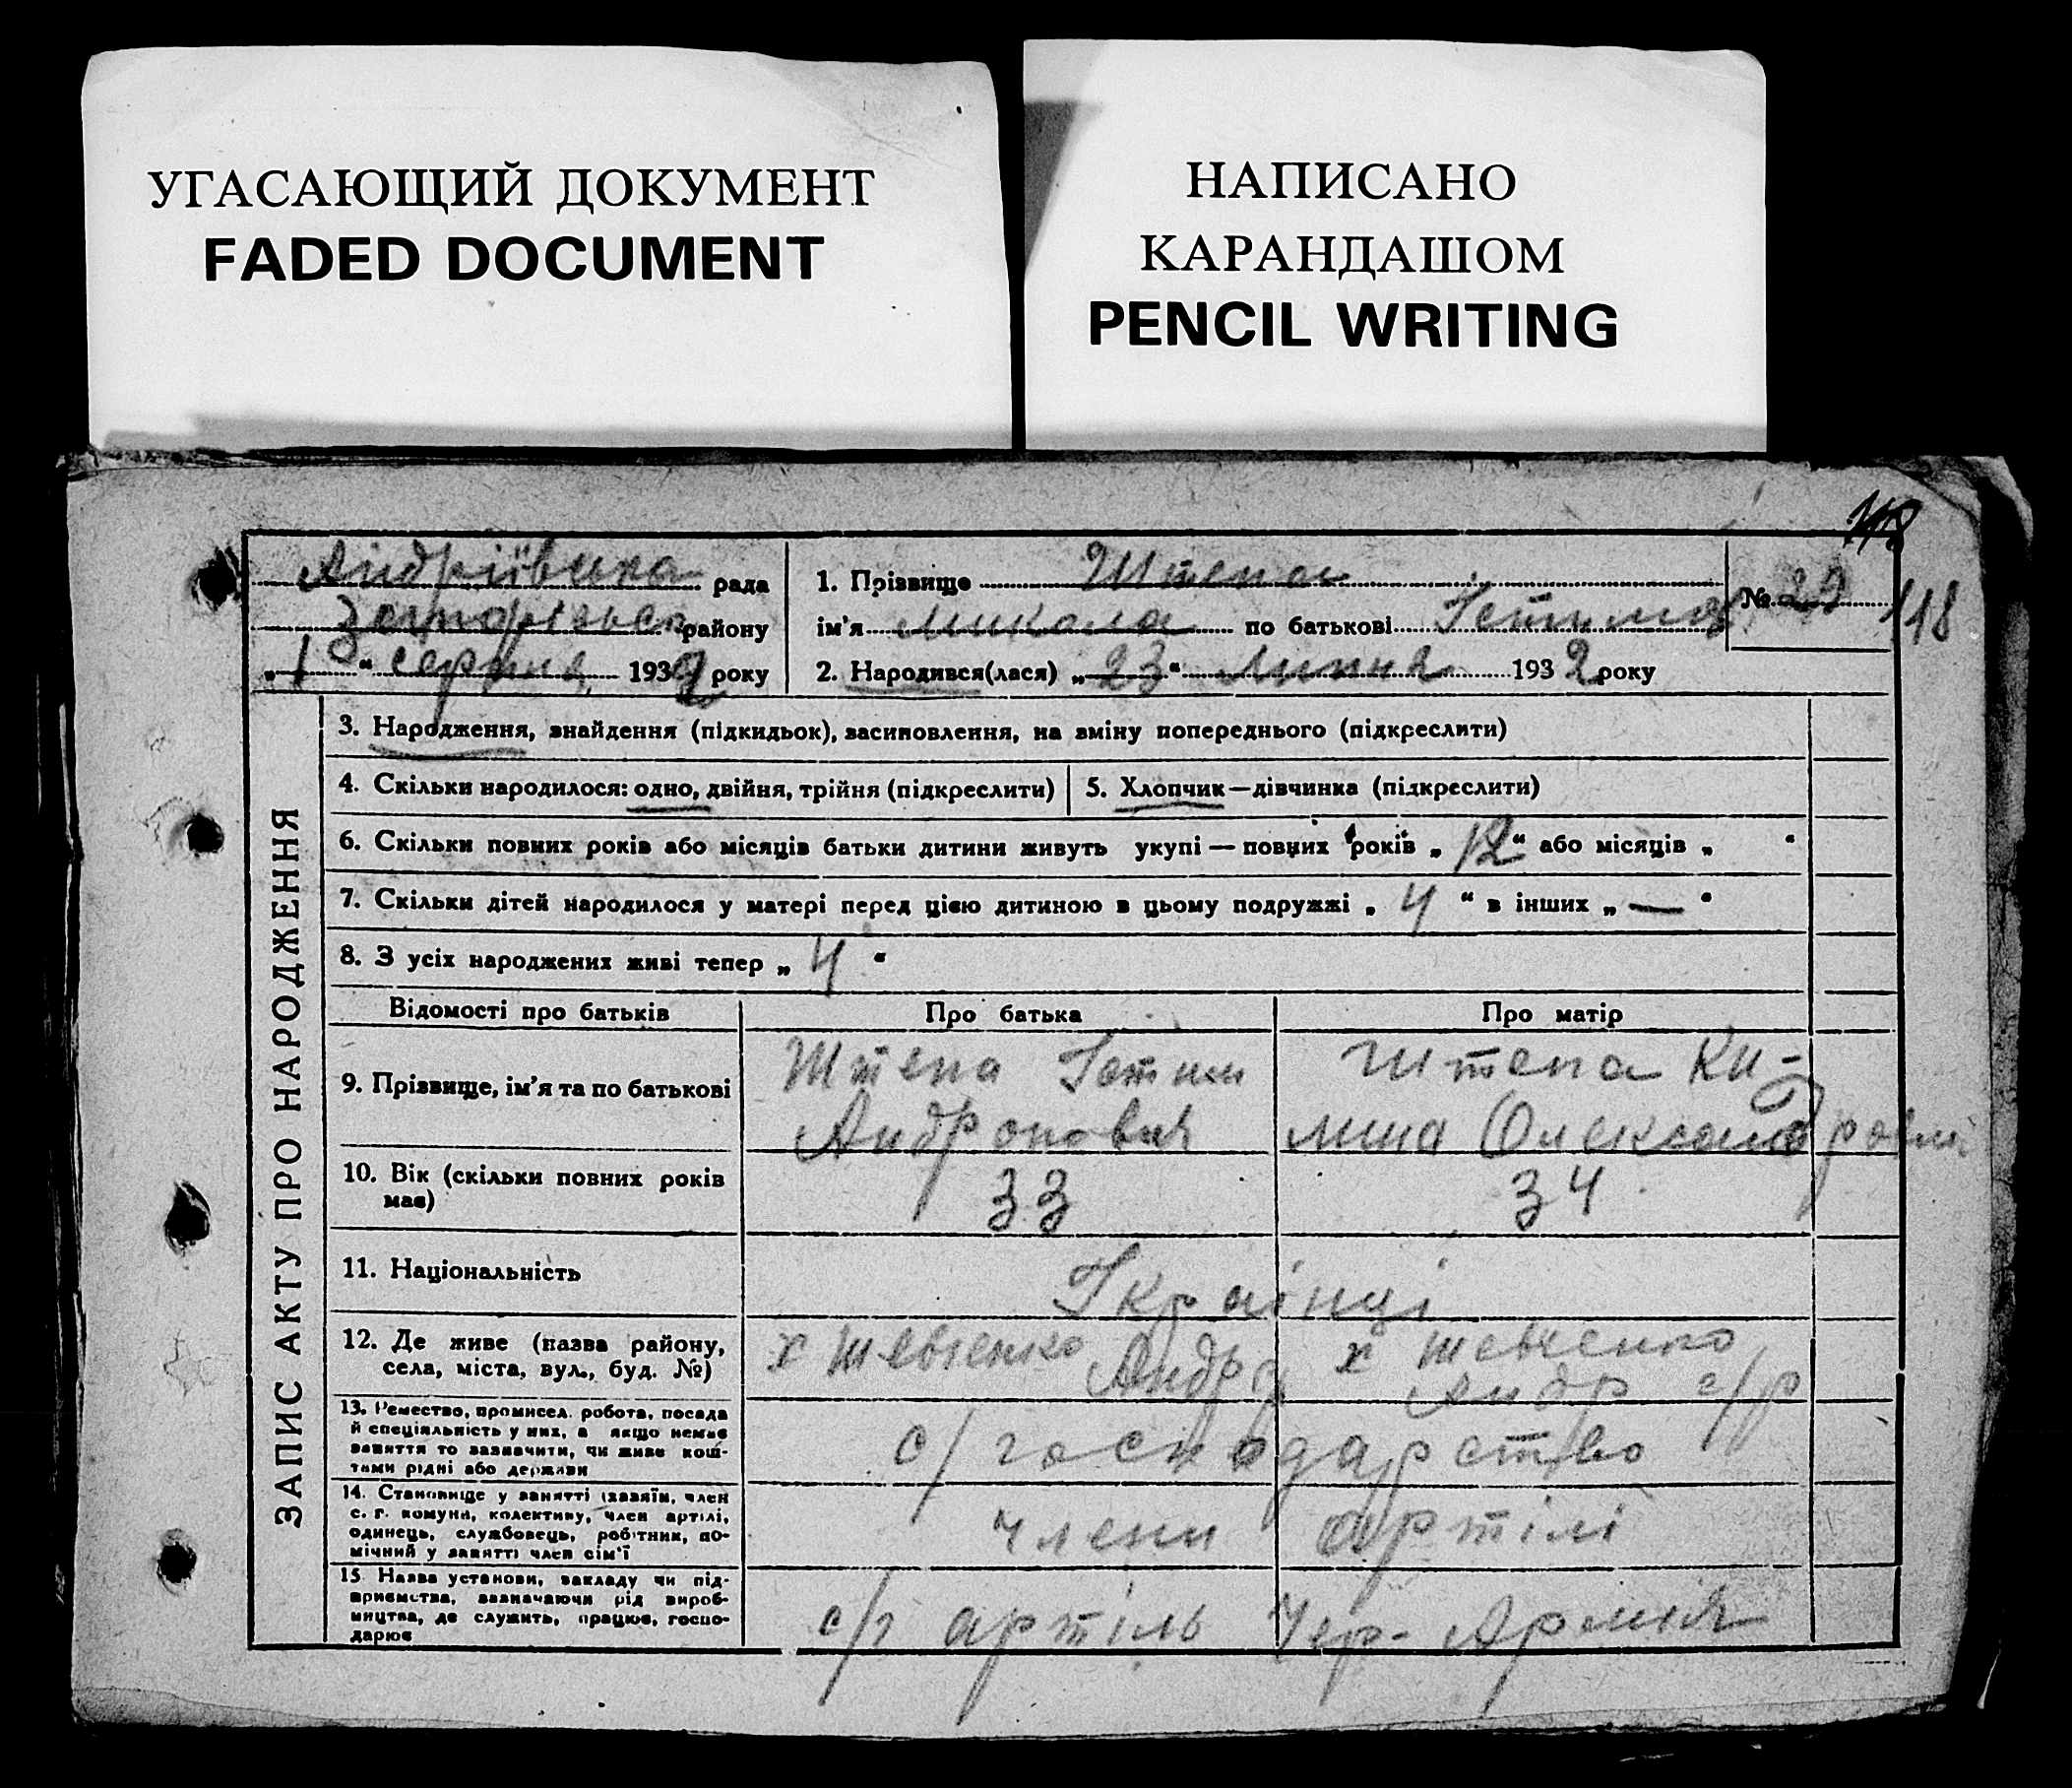 УГАСАЮЩИЙ ДОКУМЕНТ
FADED DOCUMENT
НАПИСАНО
КАРАНДАШОМ
PENCIL WRITING
118
Андріївська рада
району
„1“ серпня 1932 року
1. Прізвище Штепа
ім'я Микола по батькові
№ 29
118
2. Народився(лася) „23“ Липня 1932 року
ЗАПИС АКТУ ПРО НАРОДЖЕННЯ
3. Народження, знайдення (підкидьок), засиновлення, на зміну попереднього (підкреслити)
4. Скільки народилося: одно, двійня, трійня (підкреслити)
5. Хлопчик—дівчинка (підкреслити)
6. Скільки повних років або місяців батьки дитини живуть укупі — повних років „12“ або місяців „ “
7. Скільки дітей народилося у матері перед цією дитиною в цьому подружжі „4“ в інших „—“
8. З усіх народжених живі тепер „4“
Відомості про батьків
Про батька
Про матір
9. Прізвище, ім'я та по батькові
Штепа
Андронович
Штепа Ки-
лина Олександровна
10. Вік (скільки повних років
має)
33
34
11. Національність
Українці
12. Де живе (назва району,
села, міста, вул., буд. №)
х Шевченко
Андр
х Шевченко
Андр с/р
13. Ремество, промисел, робота, посада
й спеціяльність у них, а якщо немає
заняття то зазначити, чи живе кош-
тами рідні або держави
с/господарство
14. Становище у занятті (хазяїн, член
с. г. комуни, колективу, член артілі,
одинець, службовець, робітник, по-
мічний у занятті член сім'ї
члени артілі
15. Назва установи, закладу чи під-
приємства, зазначаючи рід вироб-
ництва, де служить, працює, госпо-
дарює
с/г артіль Чер- Армія